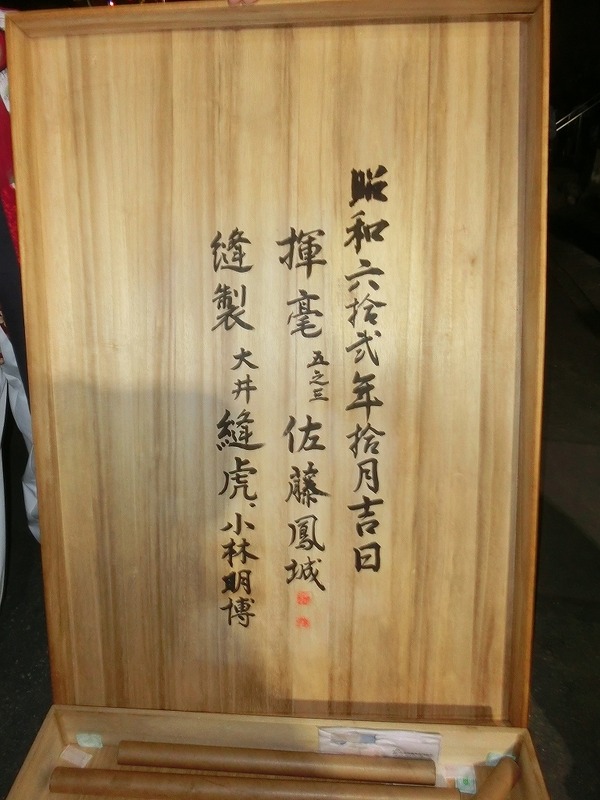 昭和六拾弐年拾月吉日
揮毫 五之三 佐藤鳳城
縫製 大井 縫虎、小林明博